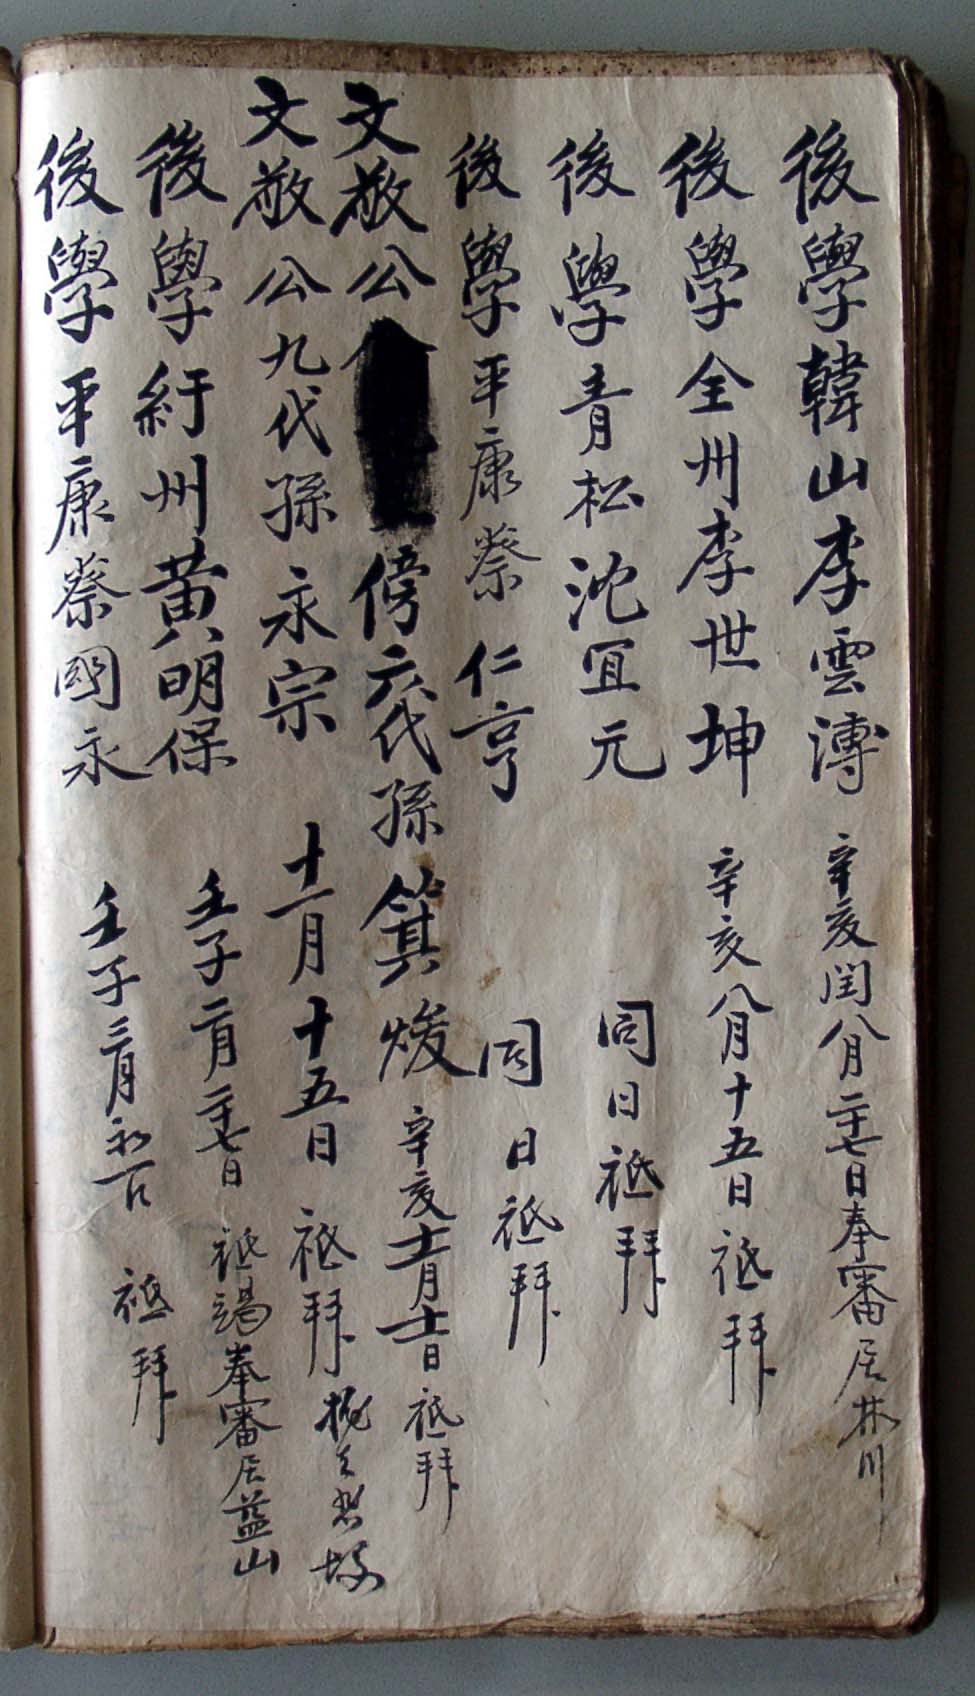 後學韓山李雲溥 辛亥閏八月二十七日奉審居林川
後學全州李世坤 辛亥八月十五日祗拜
後學青松沈宜元 同日祗拜
後學平康蔡仁亨 同日祗拜
文敬公 傍六代孫箕焌 辛亥十一月十一日祗拜
文敬公九代孫永宗 十一月十五日 祗拜
後學紆州黃明保 壬子二月二十七日 祗謁奉審居益山
後學平康蔡國永 壬子三月初 祗拜